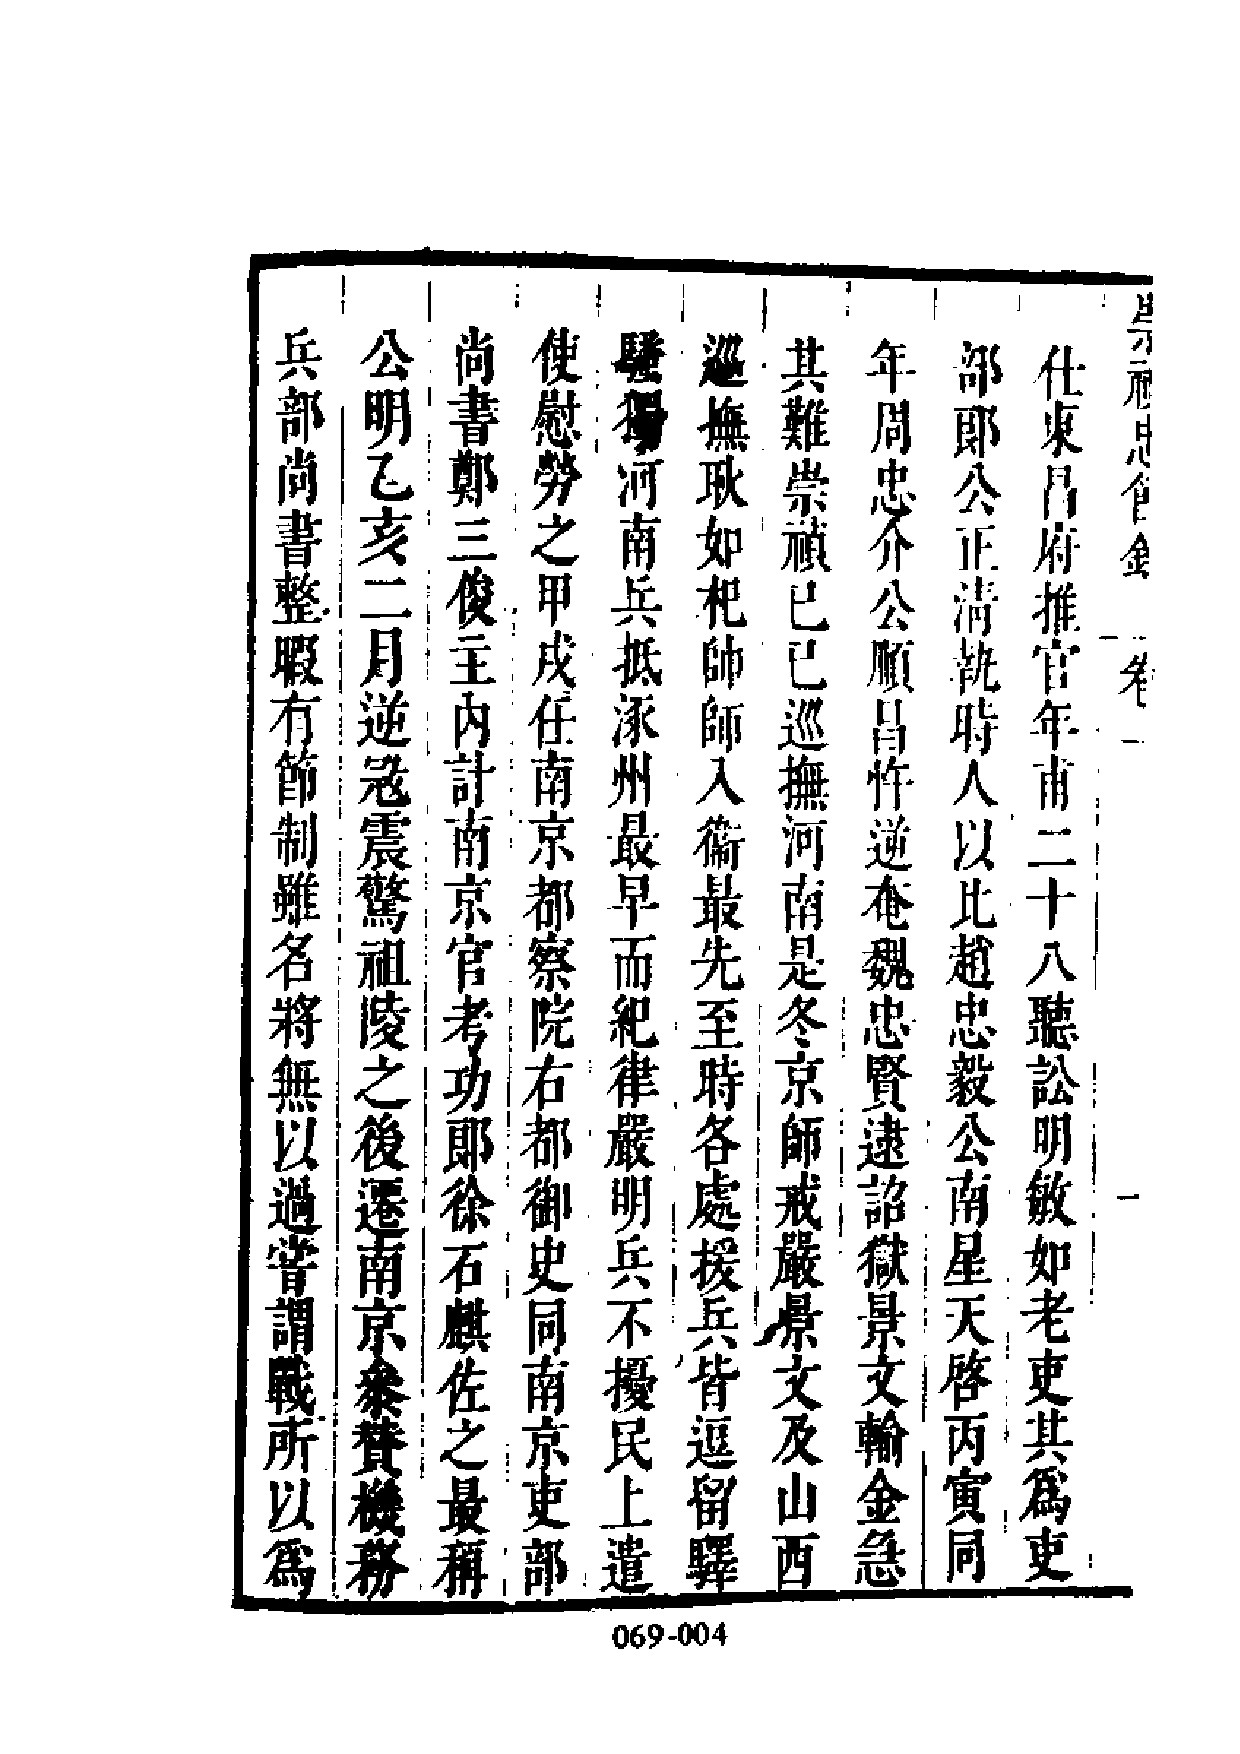 崇禎忠節錄 卷一 一
仕東昌府推官年甫二十八聽訟明敏如老吏其爲吏
部郎公正淸執時人以比趙忠毅公南星天啓丙寅同
年周忠介公順昌忤逆奄魏忠賢逮詔獄景文輸金急
其難崇禎已巳巡撫河南是冬京師戒嚴景文及山西
巡撫耿如杞帥師入衞最先至時各處援兵皆逗留驛
騷獨河南兵抵涿州最早而紀律嚴明兵不擾民上遣
使慰勞之甲戌任南京都察院右都御史同南京吏部
尚書鄭三俊主內計南京官考功郎徐石麒佐之最稱
公明乙亥二月逆寇震驚祖陵之後遷南京叅贊機務
兵部尚書整暇有節制雖名將無以過嘗謂戰所以爲
069-004